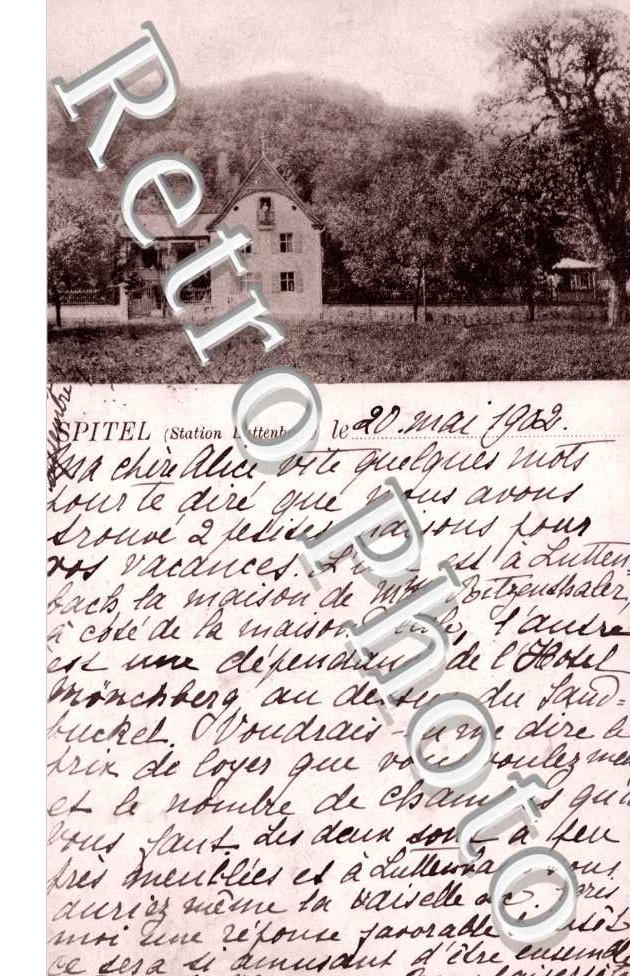 Retro Photo
SPITEL (Station le 20. mai 1902.
Ma chère Alice vite quelques mots
pour te dire que nous avons
trouvé 2 petites maisons pour
vos vacances. est à Lutten=
bach, la maison de Mme Ritzenthaler,
à coté de la maison l'autre
est une dépendance de l'Hotel
Mönchberg au dessus du Sand=
buckel. Voudrais-tu me dire le
prix de loyer que vous voulez
et le nombre de chambres qu'il
vous faut. Les deux sont à peu
près meublées et à vous
auriez même la vaiselle
moi une réponse favorable!
ce sera si amusant d'être ensemble